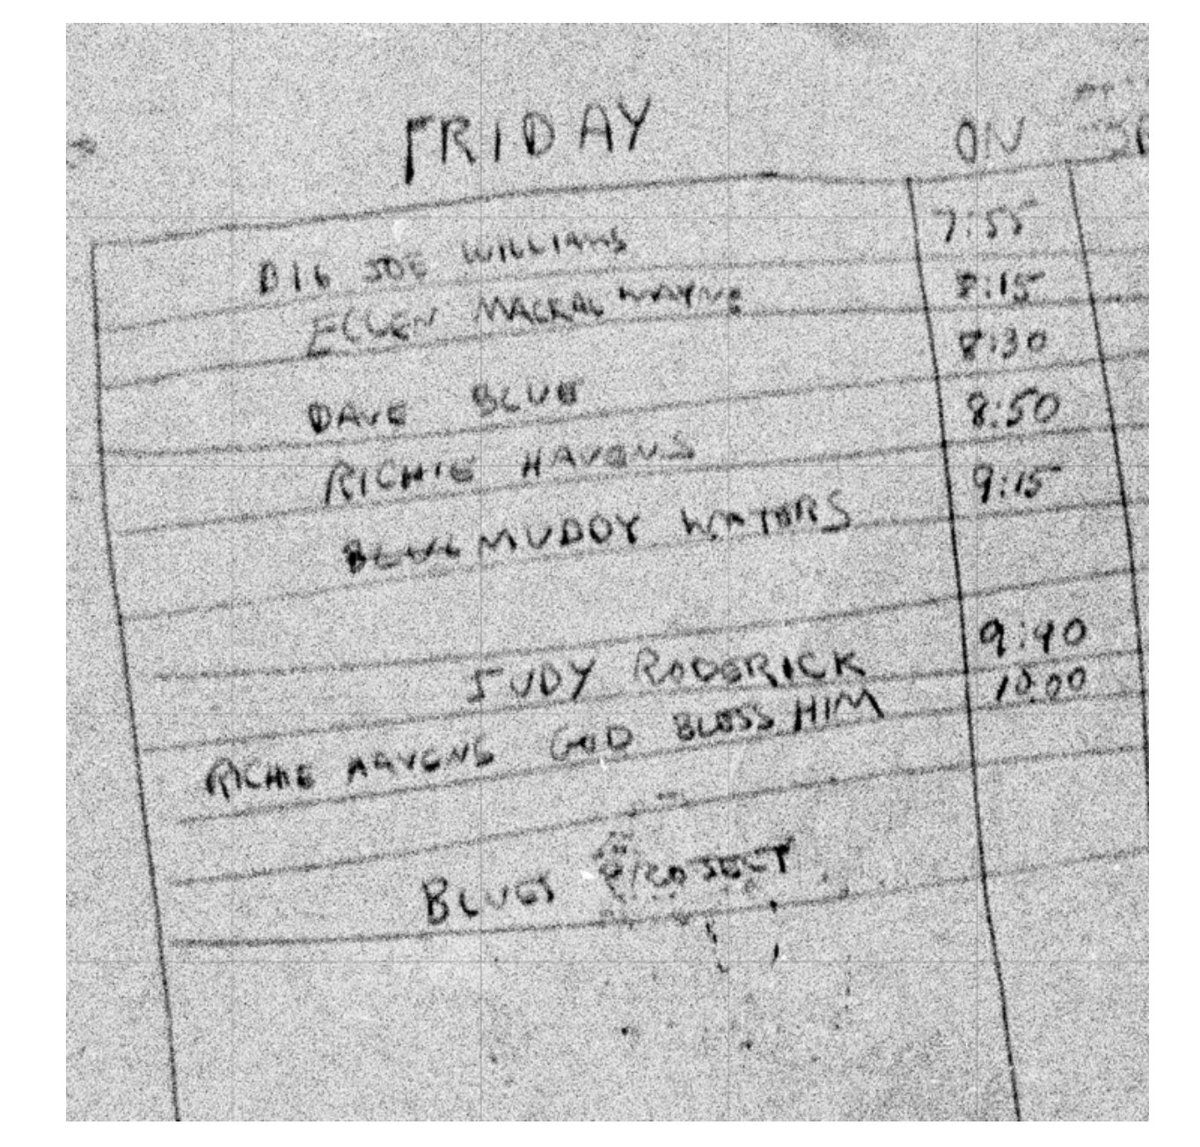 FRIDAY ON
BIG JOE WILLIAMS 7:55
ELLEN MACKRAL WAYNE 8:15
DAVE BLUE 8:30
RICHIE HAVENS 8:50
MUDDY WATERS 9:15
JUDY RODERICK 9:40
RICHIE HAVENS GOD BLESS HIM 10:00
BLUES PROJECT